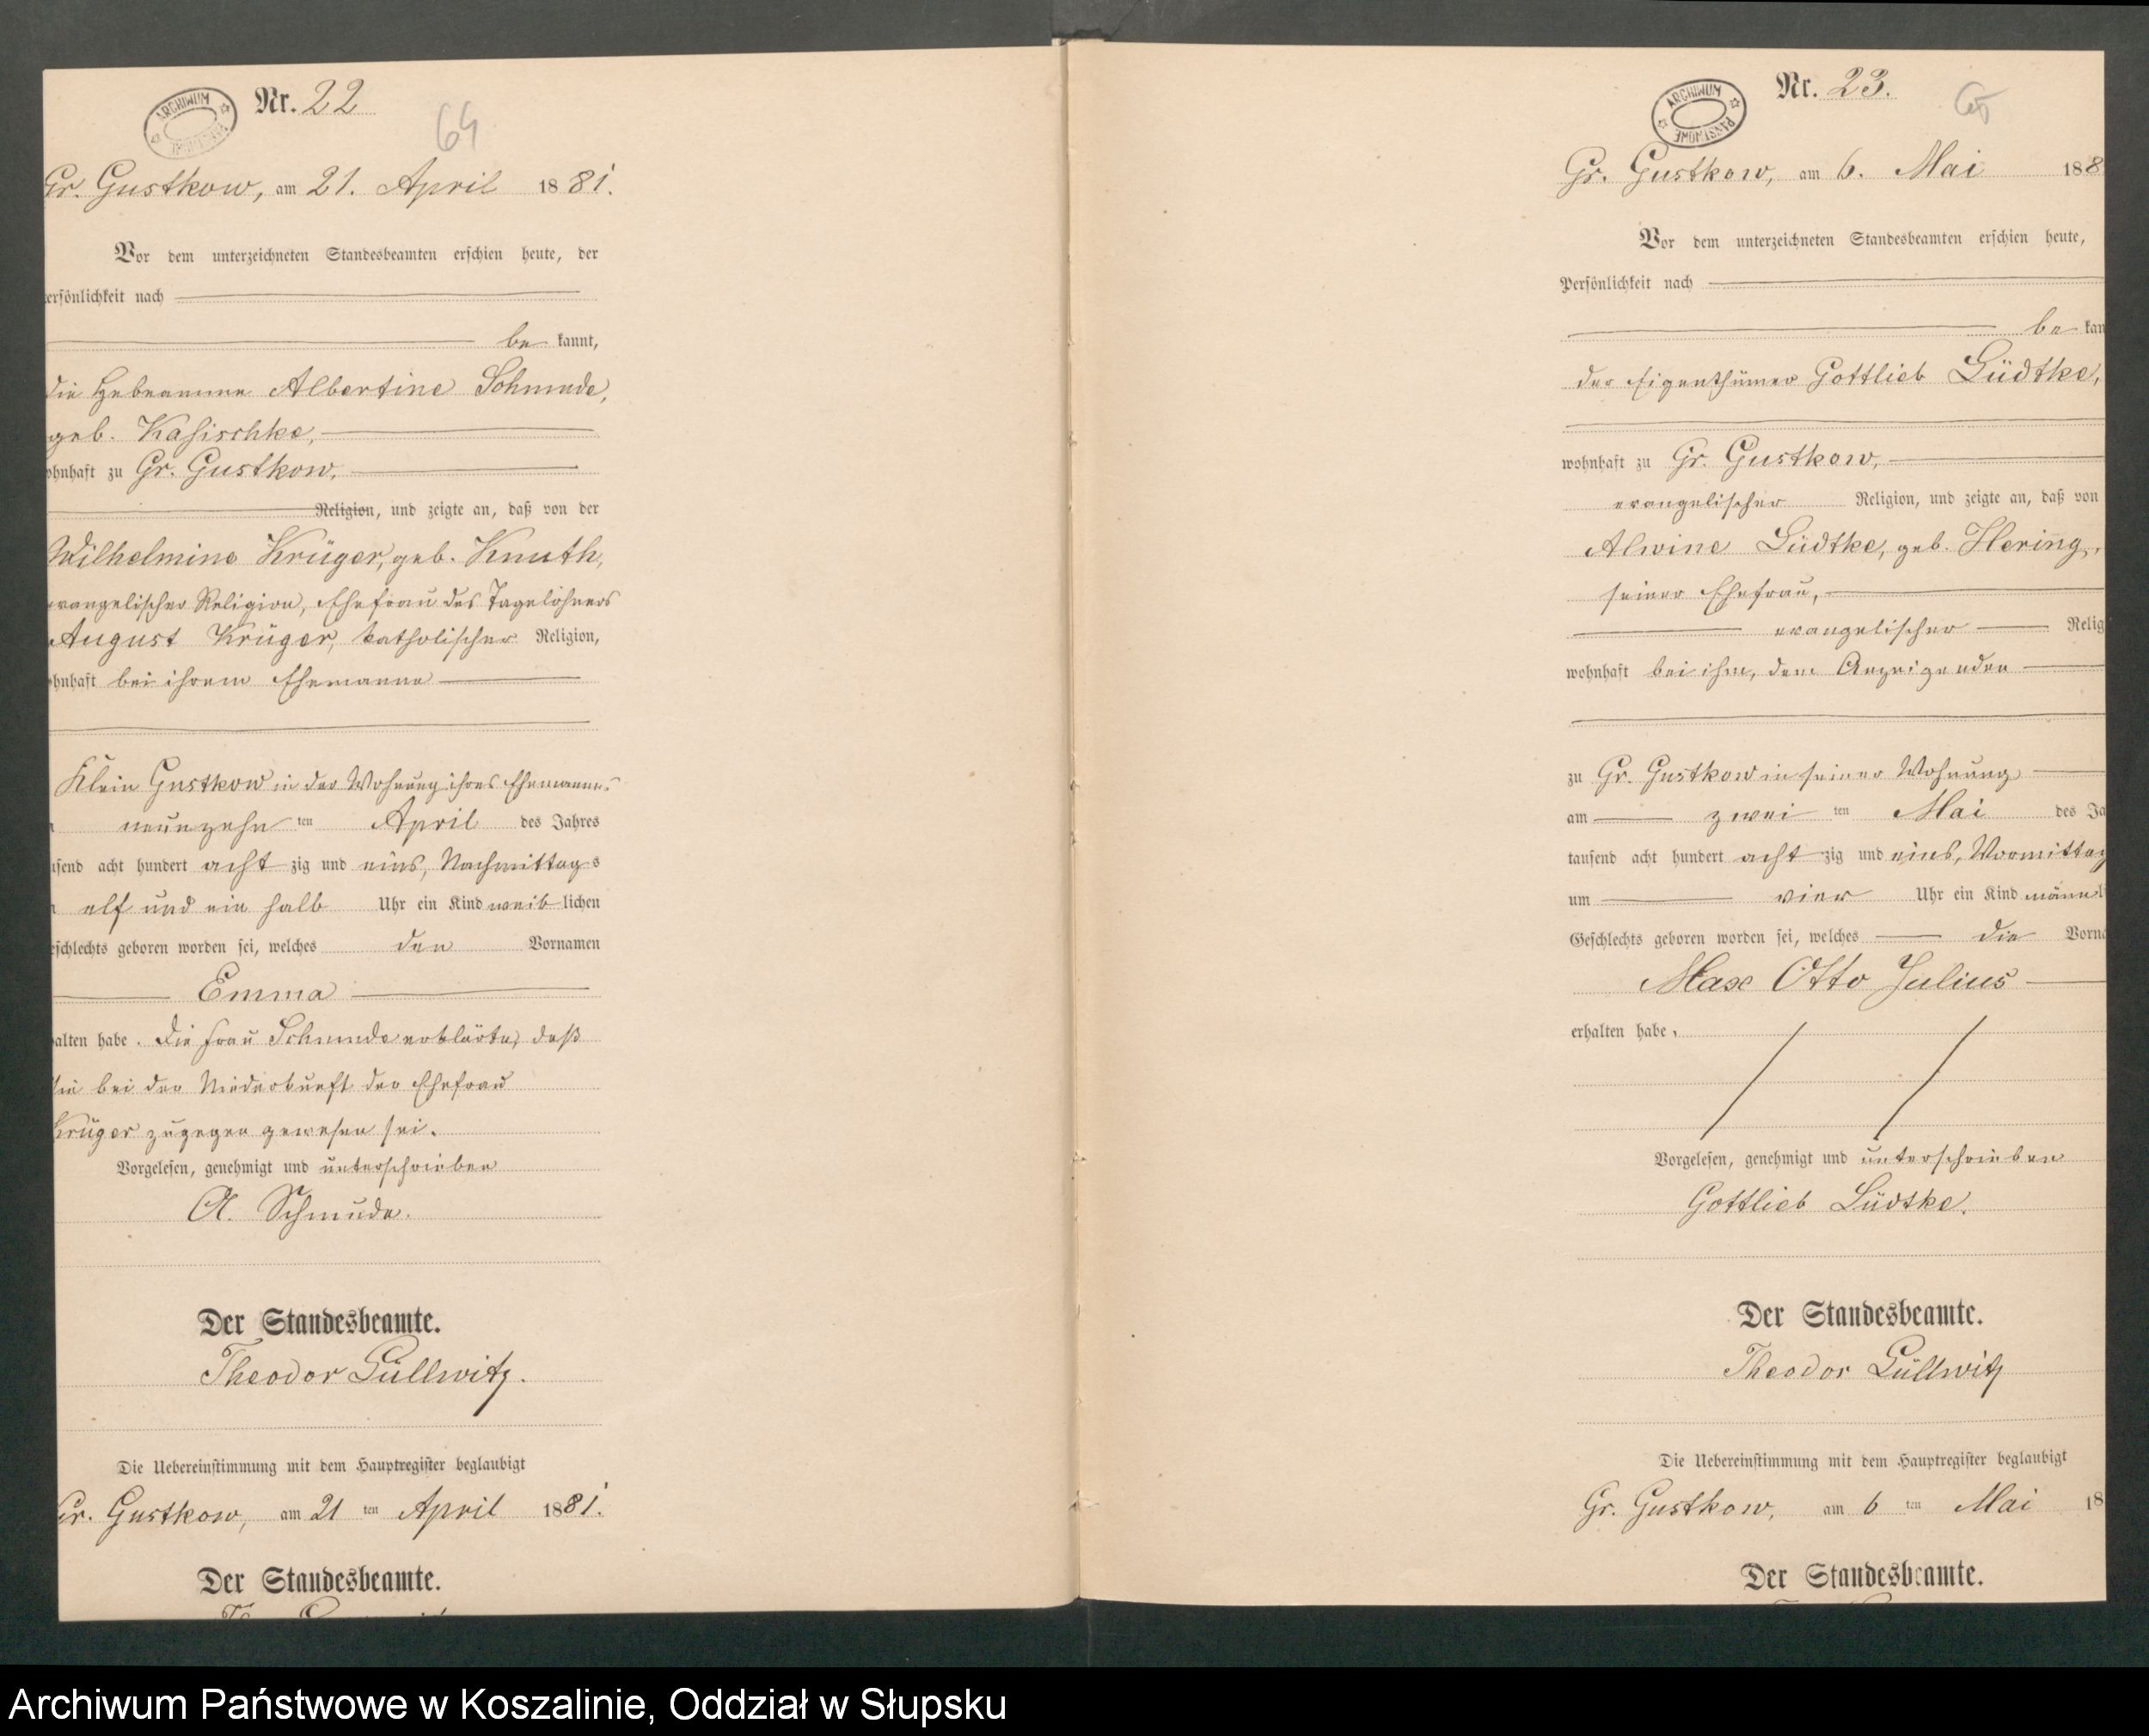 ARCHIWUM
Nr. 22
64
Gr. Gustkow, am 21. April 1881.
Vor dem unterzeichneten Standesbeamten erschien heute, der
ersönlichkeit nach
be kannt,
die Hebeamme Albertine Schmude,
geb. Kaſischke,
ohnhaft zu Gr. Gustkow,
Religion, und zeigte an, daß von der
Wilhelmine Krüger, geb. Knuth,
evangelischer Religion, Ehefrau des Tagelöhners
August Krüger, katholischer Religion,
ohnhaft bei ihrem Ehemanne
Klein Gustkow in der Wohnung ihres Ehemannes
neunzehn ten April des Jahres
usend acht hundert acht zig und eins, Nachmittags
elf und ein halb Uhr ein Kind weib lichen
eschlechts geboren worden sei, welches den Vornamen
Emma
alten habe. Die Frau Schmude erklärte, daß
sie bei der Niederkunft der Ehefrau
Krüger zugegen gewesen sei.
Vorgelesen, genehmigt und unterschrieben
A. Schmude.
Der Standesbeamte.
Theodor Lüllwitz.
Die Uebereinstimmung mit dem Hauptregister beglaubigt
Gr. Gustkow, am 21 ten April 1881.
Der Standesbeamte.
ARCHIWUM PAŃSTWOWE
Nr. 23.
65
Gr. Gustkow, am 6. Mai 188
Vor dem unterzeichneten Standesbeamten erschien heute,
Persönlichkeit nach
be kan
der Eigenthümer Gottlieb Lüdtke,
wohnhaft zu Gr. Gustkow,
evangelischer Religion, und zeigte an, daß von
Alwine Lüdtke, geb. Hering,
seiner Ehefrau,
evangelischer Relig
wohnhaft bei ihm, dem Anzeigenden
zu Gr. Gustkow in seiner Wohnung
am zwei ten Mai des Ja
tausend acht hundert acht zig und eins, Vormittag
um vier Uhr ein Kind männ l
Geschlechts geboren worden sei, welches die Vorna
Max Otto Julius
erhalten habe.
Vorgelesen, genehmigt und unterschrieben
Gottlieb Lüdtke.
Der Standesbeamte.
Theodor Lüllwitz
Die Uebereinstimmung mit dem Hauptregister beglaubigt
Gr. Gustkow, am 6 ten Mai 18
Der Standesbeamte.
Archiwum Państwowe w Koszalinie, Oddział w Słupsku